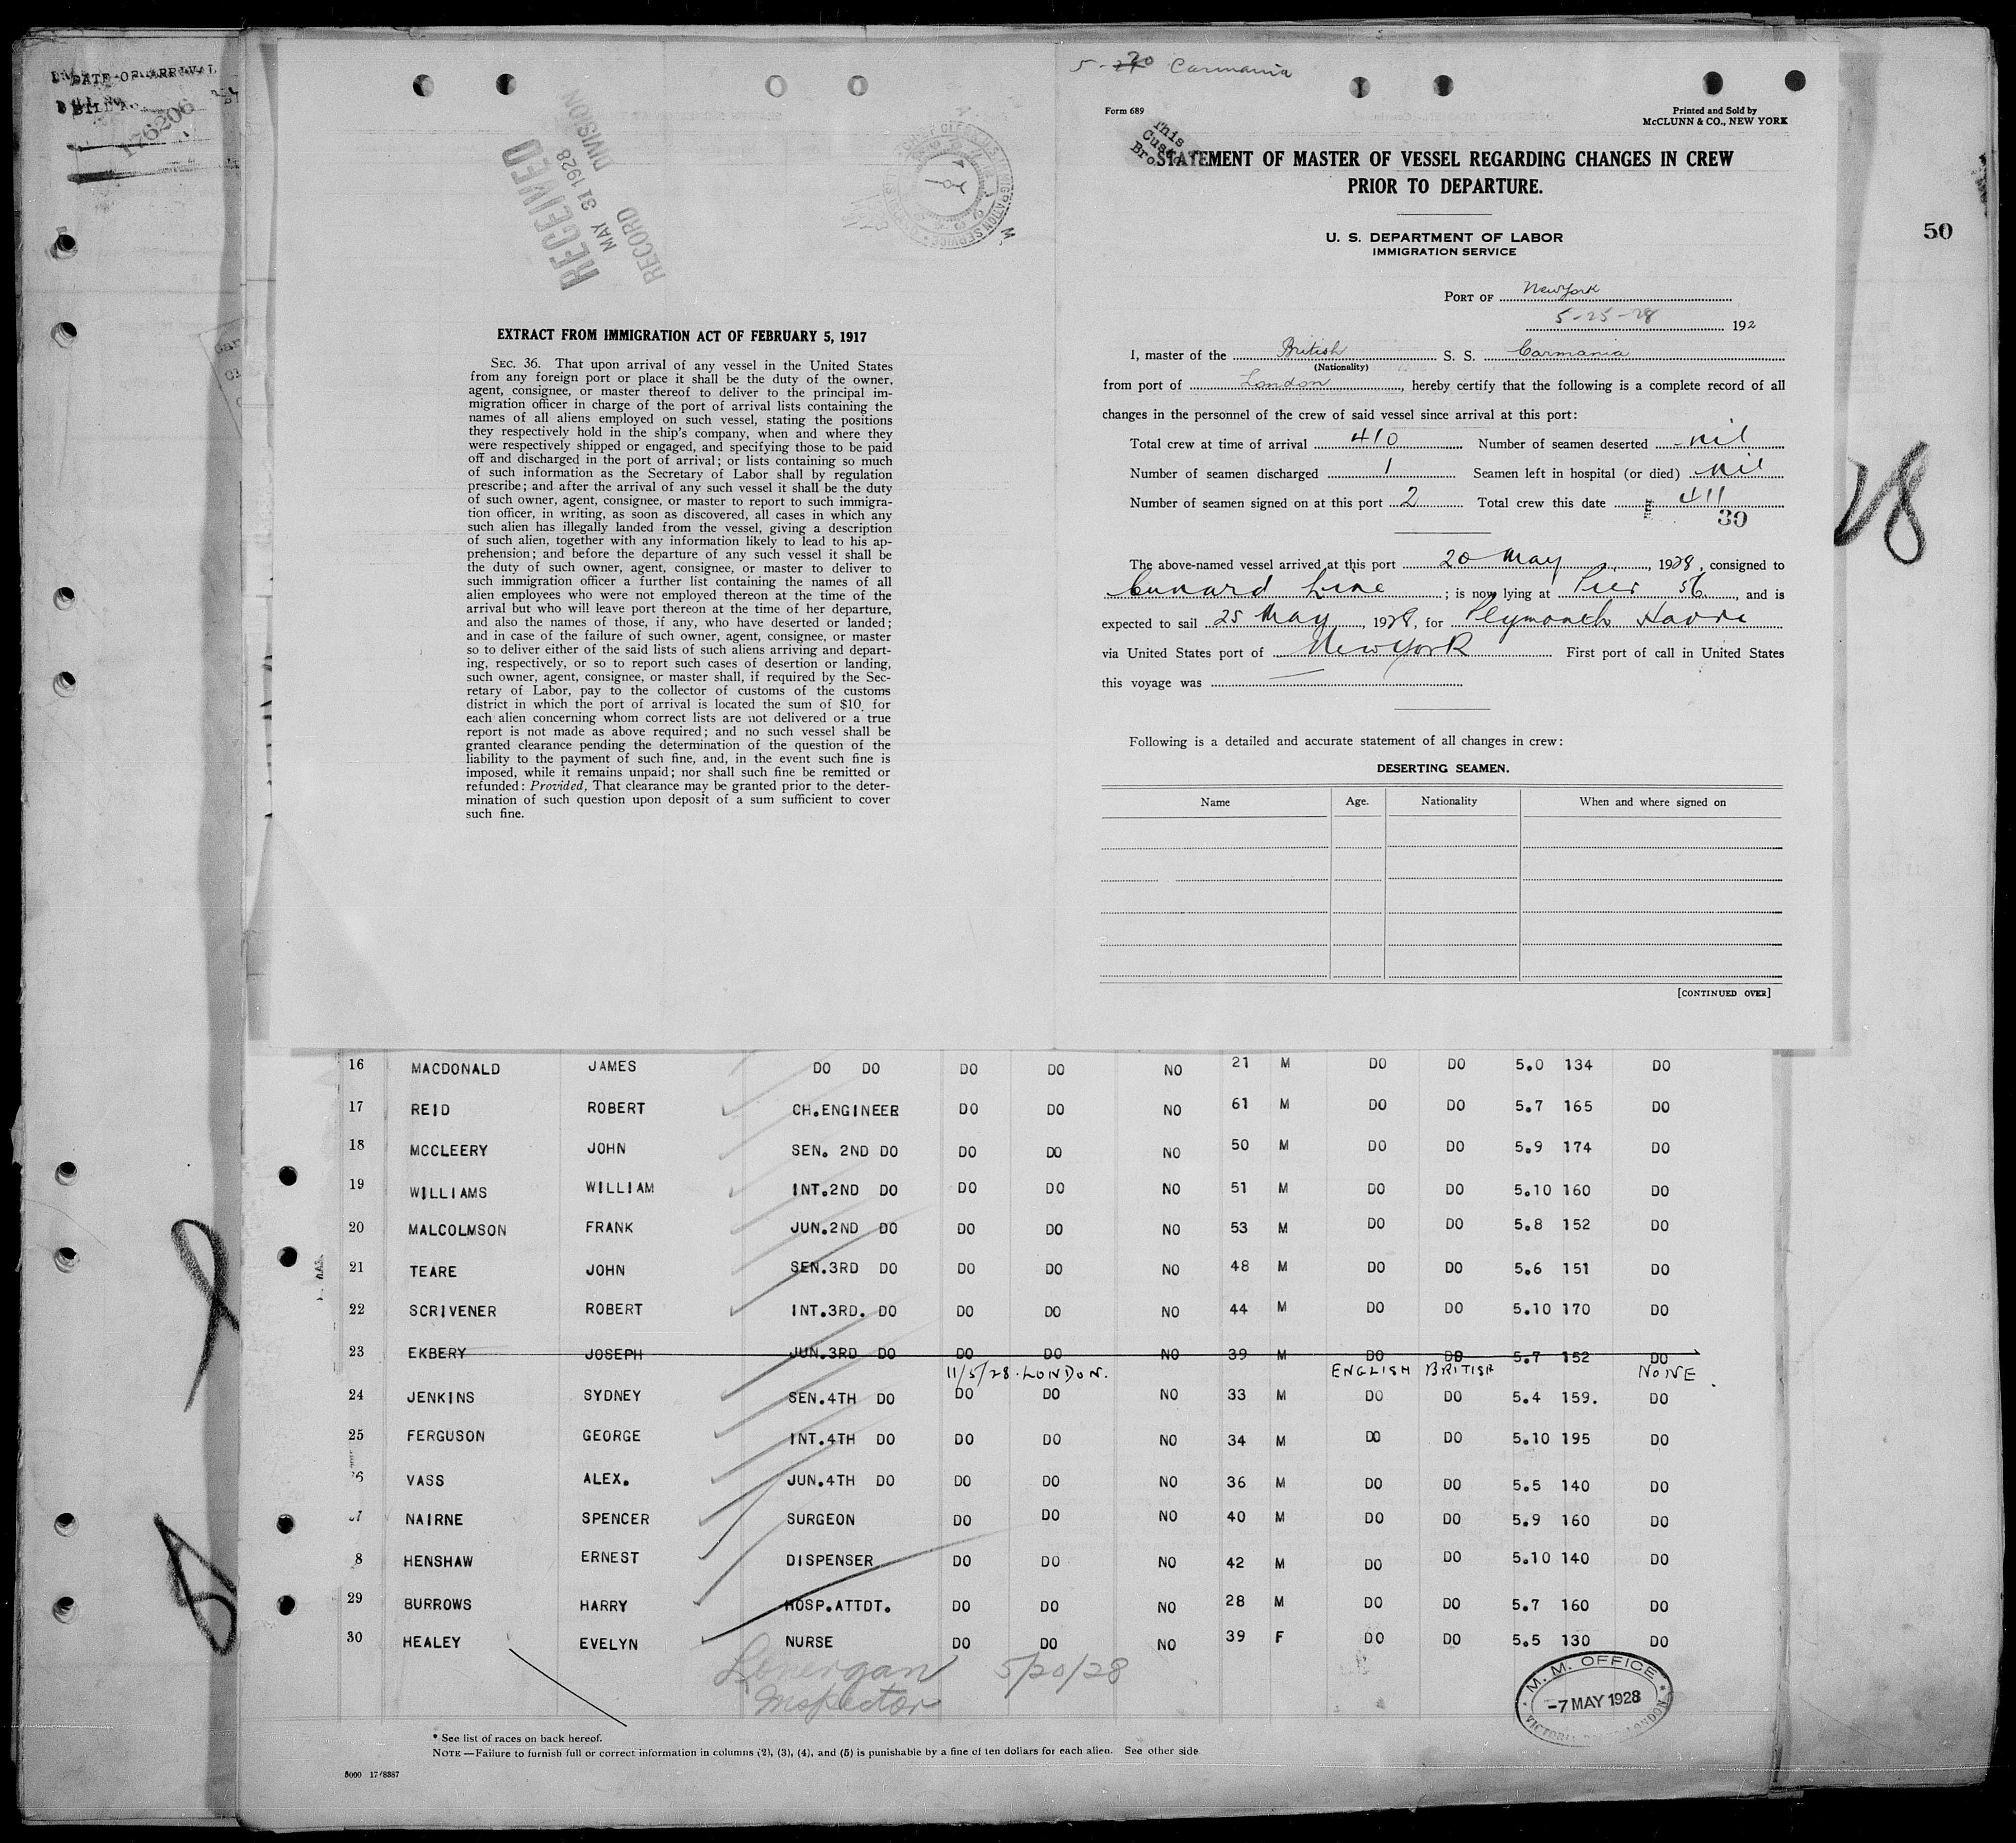 DATE OF ARRIVAL
176206
RECEIVED
MAY 31 1928
RECORD DIVISION
EXTRACT FROM IMMIGRATION ACT OF FEBRUARY 5, 1917
SEC. 36. That upon arrival of any vessel in the United States
from any foreign port or place it shall be the duty of the owner,
agent, consignee, or master thereof to deliver to the principal im-
migration officer in charge of the port of arrival lists containing the
names of all aliens employed on such vessel, stating the positions
they respectively hold in the ship's company, when and where they
were respectively shipped or engaged, and specifying those to be paid
off and discharged in the port of arrival; or lists containing so much
of such information as the Secretary of Labor shall by regulation
prescribe; and after the arrival of any such vessel it shall be the duty
of such owner, agent, consignee, or master to report to such immigra-
tion officer, in writing, as soon as discovered, all cases in which any
such alien has illegally landed from the vessel, giving a description
of such alien, together with any information likely to lead to his ap-
prehension; and before the departure of any such vessel it shall be
the duty of such owner, agent, consignee, or master to deliver to
such immigration officer a further list containing the names of all
alien employees who were not employed thereon at the time of the
arrival but who will leave port thereon at the time of her departure,
and also the names of those, if any, who have deserted or landed;
and in case of the failure of such owner, agent, consignee, or master
so to deliver either of the said lists of such aliens arriving and depart-
ing, respectively, or so to report such cases of desertion or landing,
such owner, agent, consignee, or master shall, if required by the Sec-
retary of Labor, pay to the collector of customs of the customs
district in which the port of arrival is located the sum of $10 for
each alien concerning whom correct lists are not delivered or a true
report is not made as above required; and no such vessel shall be
granted clearance pending the determination of the question of the
liability to the payment of such fine, and, in the event such fine is
imposed, while it remains unpaid; nor shall such fine be remitted or
refunded: Provided, That clearance may be granted prior to the deter-
mination of such question upon deposit of a sum sufficient to cover
such fine.
5-20 Carmania
Form 689
Printed and Sold by
McCLUNN & CO., NEW YORK
This
STATEMENT OF MASTER OF VESSEL REGARDING CHANGES IN CREW
PRIOR TO DEPARTURE.
U. S. DEPARTMENT OF LABOR
IMMIGRATION SERVICE
PORT OF New York
5-25-28 192
I, master of the British S. S. Carmania
(Nationality)
from port of London, hereby certify that the following is a complete record of all
changes in the personnel of the crew of said vessel since arrival at this port:
Total crew at time of arrival 410 Number of seamen deserted nil
Number of seamen discharged 1 Seamen left in hospital (or died) nil
Number of seamen signed on at this port 2 Total crew this date 411
30
The above-named vessel arrived at this port 20 May, 1928, consigned to
Cunard Line; is now lying at Pier 56, and is
expected to sail 25 May, 1928, for Plymouth Havre
via United States port of New York First port of call in United States
this voyage was
Following is a detailed and accurate statement of all changes in crew:
DESERTING SEAMEN.
Name Age. Nationality When and where signed on
[CONTINUED OVER]
50
28
16 MACDONALD JAMES DO DO DO DO NO 21 M DO DO 5.0 134 DO
17 REID ROBERT CH.ENGINEER DO DO NO 61 M DO DO 5.7 165 DO
18 MCCLEERY JOHN SEN. 2ND DO DO DO NO 50 M DO DO 5.9 174 DO
19 WILLIAMS WILLIAM INT.2ND DO DO DO NO 51 M DO DO 5.10 160 DO
20 MALCOLMSON FRANK JUN.2ND DO DO DO NO 53 M DO DO 5.8 152 DO
21 TEARE JOHN SEN.3RD DO DO DO NO 48 M DO DO 5.6 151 DO
22 SCRIVENER ROBERT INT.3RD. DO DO DO NO 44 M DO DO 5.10 170 DO
23 EKBERY JOSEPH JUN.3RD DO DO DO NO 39 M DO DO 5.7 152 DO
11/5/28. LONDON. ENGLISH BRITISH NONE
24 JENKINS SYDNEY SEN.4TH DO DO DO NO 33 M DO DO 5.4 159. DO
25 FERGUSON GEORGE INT.4TH DO DO DO NO 34 M DO DO 5.10 195 DO
6 VASS ALEX. JUN.4TH DO DO DO NO 36 M DO DO 5.5 140 DO
7 NAIRNE SPENCER SURGEON DO DO NO 40 M DO DO 5.9 160 DO
8 HENSHAW ERNEST DISPENSER DO DO NO 42 M DO DO 5.10 140 DO
29 BURROWS HARRY HOSP.ATTDT. DO DO NO 28 M DO DO 5.7 160 DO
30 HEALEY EVELYN NURSE DO DO NO 39 F DO DO 5.5 130 DO
Lonergan 5/20/28
Inspector
M. M. OFFICE
-7 MAY 1928
LONDON
* See list of races on back hereof.
NOTE—Failure to furnish full or correct information in columns (2), (3), (4), and (5) is punishable by a fine of ten dollars for each alien. See other side
5000 17/8387